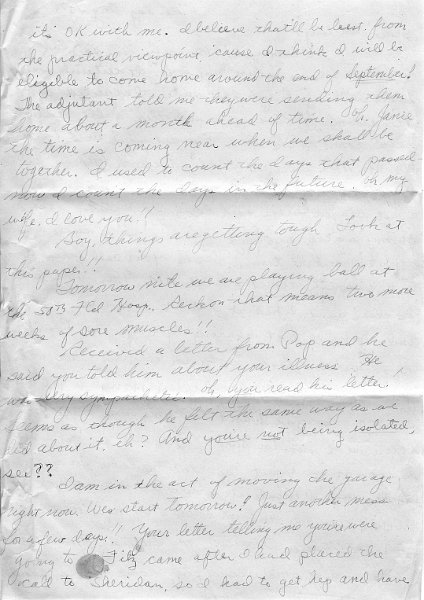 it's OK with me. I believe that'll be best from
the practical viewpoint, 'cause I think I will be
eligible to come home around the end of September!
The adjutant told me they were sending them
home about a month ahead of time. Oh, Janie
the time is coming near when we shall be
together. I used to count the days that passed
now I count the days in the future. Oh my
wife, I love you!!
Boy, things are getting tough. Look at
this paper!!
Tomorrow nite we are playing ball at
the 50th Fld Hosp. Reckon that means two more
weeks of sore muscles!!
Received a letter from Pop and he
said you told him about your illness. He
was very sympathetic. Oh, you read his letter,
seems as though he felt the same way as we
did about it, eh? And you're not being isolated,
see??
I am in the act of moving the garage
right now. We start tomorrow! Just another mess
for a few days!! Your letter telling me you were
going to came after I had placed the
call to Sheridan, so I had to get hep and have